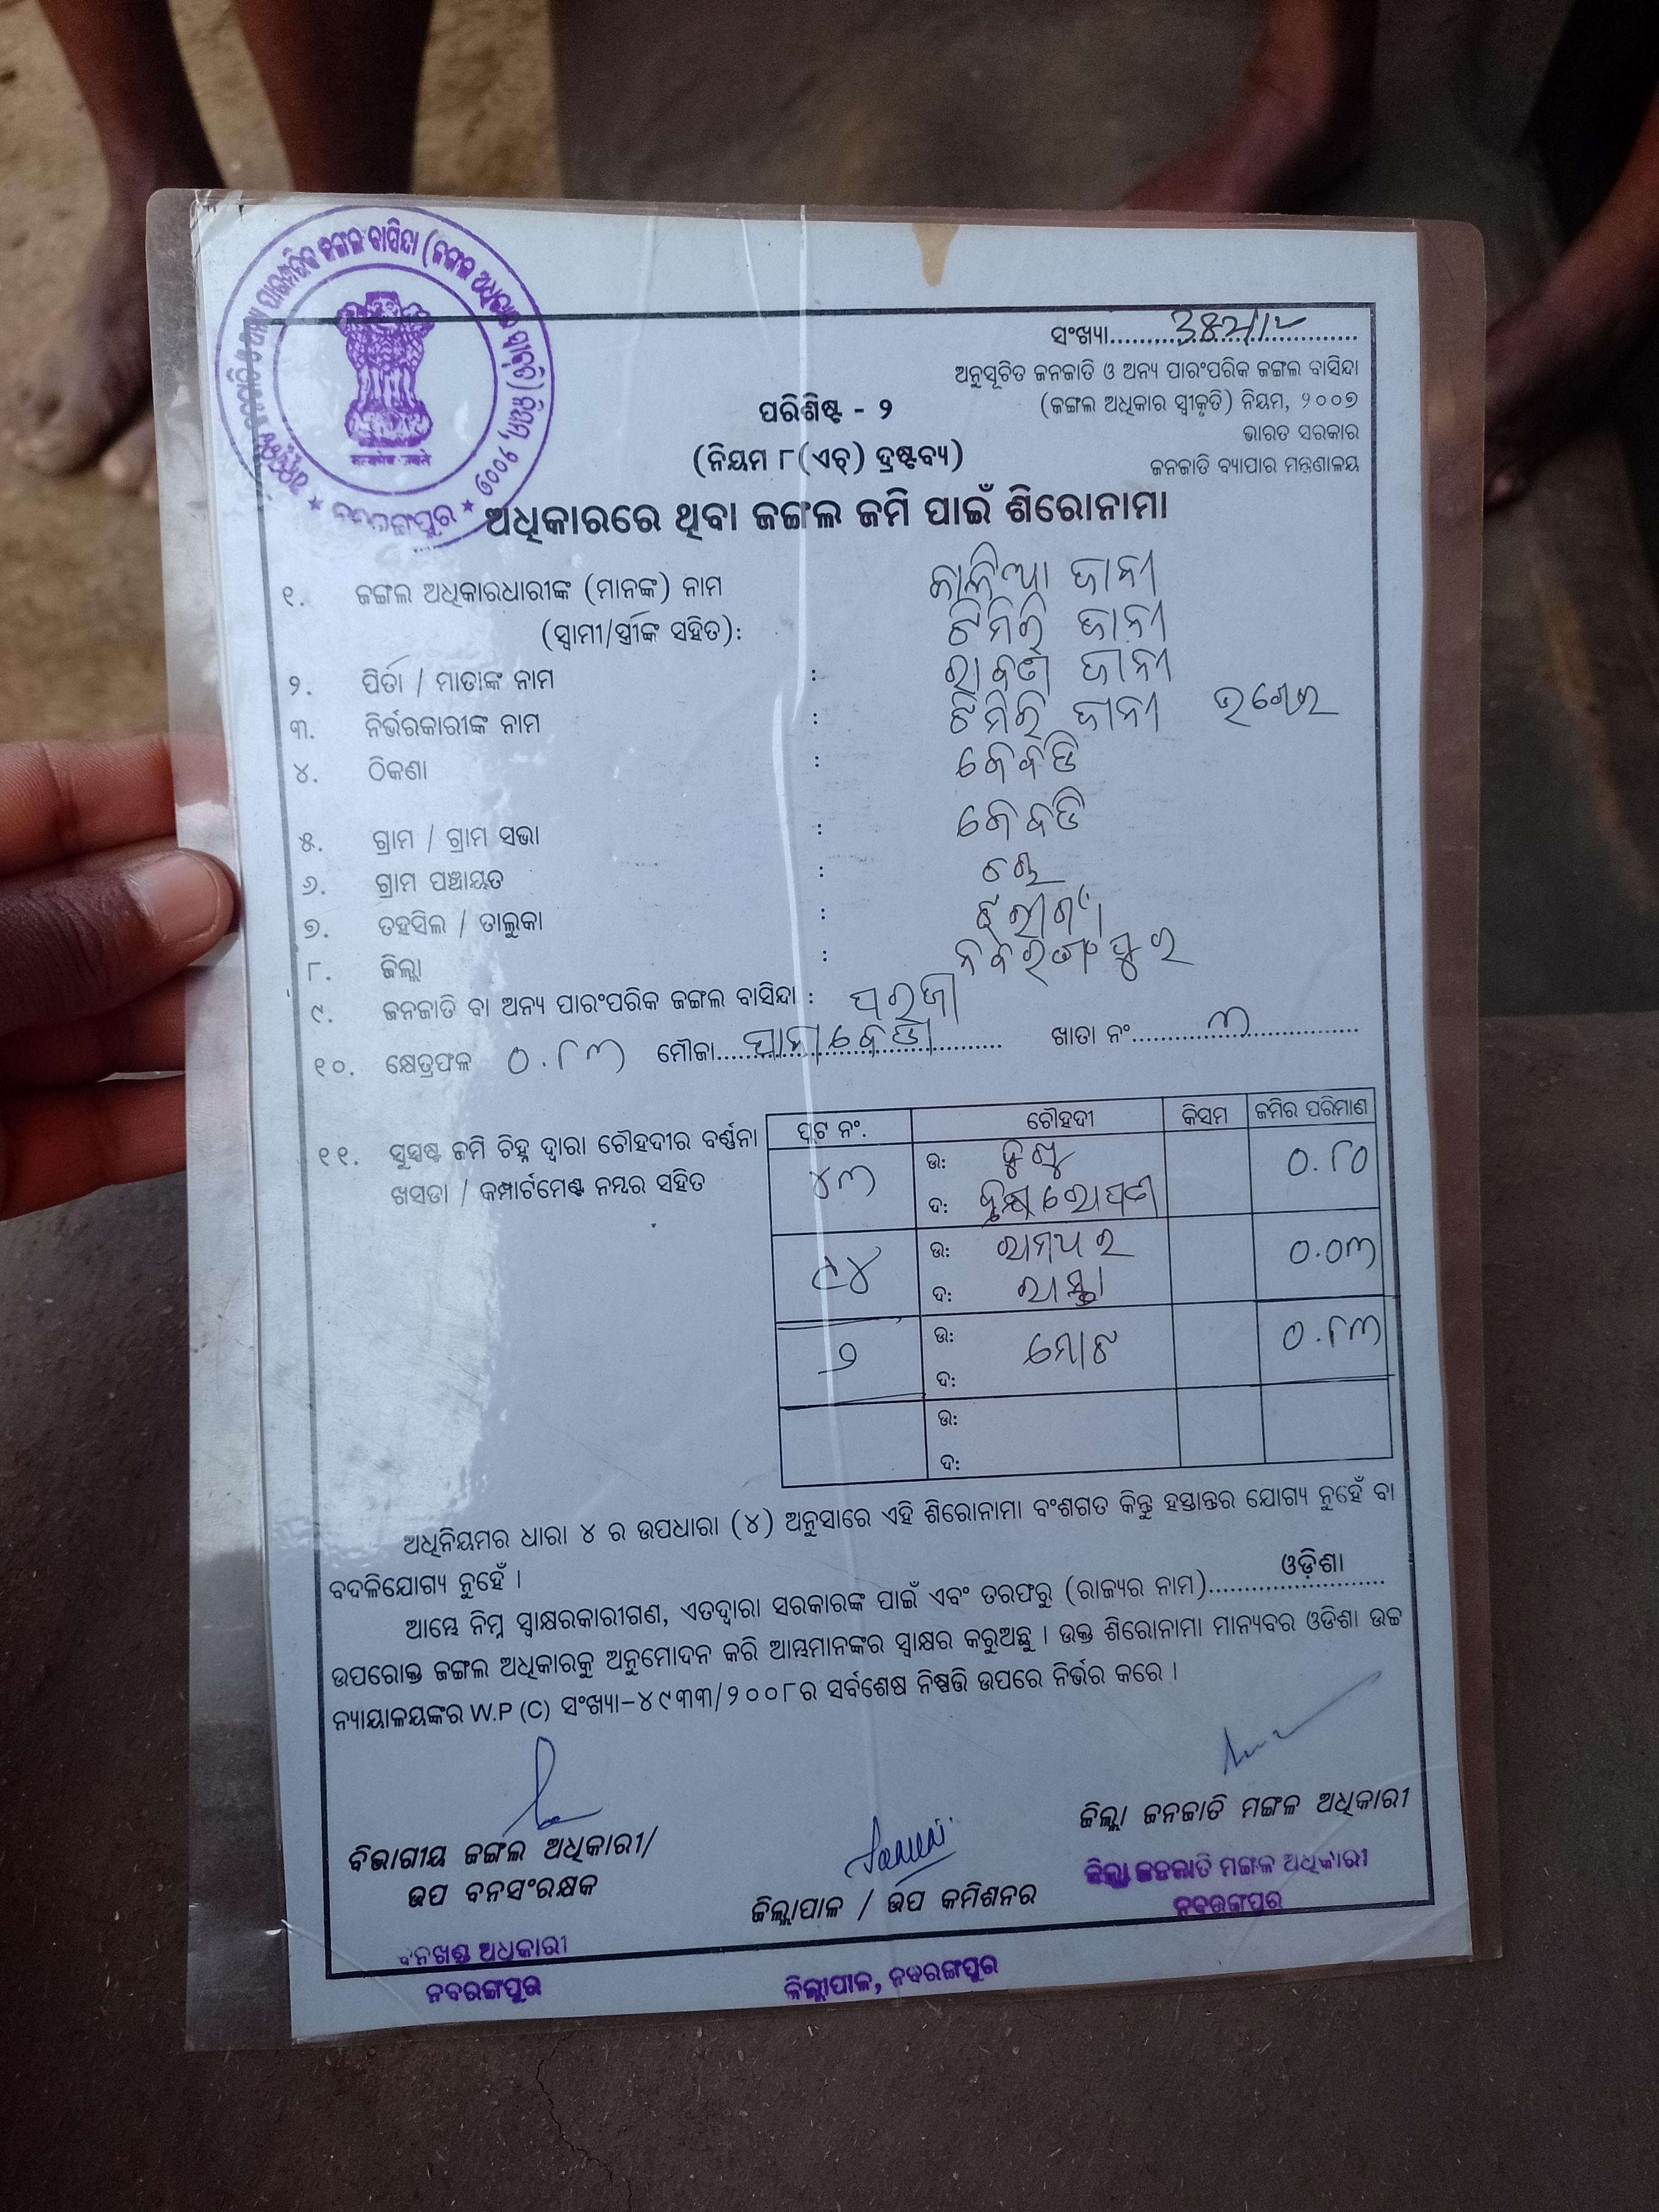 ସଂଖ୍ୟା
ଅନୁସୂଚିତ ଜନଜାତି ଓ ଅନ୍ୟ ପାରଂପରିକ ଜଙ୍ଗଲ ବାସିନ୍ଦା
(ଜଙ୍ଗଲ ଅଧିକାର ସ୍ୱୀକୃତି) ନିୟମ, ୨୦୦୭
ଭାରତ ସରକାର
ଜନଜାତି ବ୍ୟାପାର ମନ୍ତ୍ରଣାଳୟ
ପରିଶିଷ୍ଟ - ୨
(ନିୟମ ୮(ଏଚ୍) ଦ୍ରଷ୍ଟବ୍ୟ)
ନବରଙ୍ଗପୁର
ଅଧିକାରରେ ଥିବା ଜଙ୍ଗଲ ଜମି ପାଇଁ ଶିରୋନାମା
୧. ଜଙ୍ଗଲ ଅଧିକାରଧାରୀଙ୍କ (ମାନଙ୍କ) ନାମ ଜାନୀ
(ସ୍ୱାମୀ/ସ୍ତ୍ରୀଙ୍କ ସହିତ): ଟିମିରି ଜାନୀ
୨. ପିତା / ମାତାଙ୍କ ନାମ : ରାବଣ ଜାନୀ
୩. ନିର୍ଭରକାରୀଙ୍କ ନାମ : ଟିମିରି ଜାନୀ
୪. ଠିକଣା :
୫. ଗ୍ରାମ / ଗ୍ରାମ ସଭା :
୬. ଗ୍ରାମ ପଞ୍ଚାୟତ :
୭. ତହସିଲ / ତାଲୁକା : ଝରୀଗାଁ
୮. ଜିଲ୍ଲା : ନବରଙ୍ଗପୁର
୯. ଜନଜାତି ବା ଅନ୍ୟ ପାରଂପରିକ ଜଙ୍ଗଲ ବାସିନ୍ଦା : ପରଜା
୧୦. କ୍ଷେତ୍ରଫଳ ୦.୮୩ ମୌଜା ଖାତା ନଂ ୩
୧୧. ସୁସ୍ପଷ୍ଟ ଜମି ଚିହ୍ନ ଦ୍ୱାରା ଚୌହଦୀର ବର୍ଣ୍ଣନା
ଖସଡା / କମ୍ପାର୍ଟମେଣ୍ଟ ନମ୍ବର ସହିତ
ପ୍ଲଟ ନଂ. ଚୌହଦୀ କିସମ ଜମିର ପରିମାଣ
୪୩ ଉ: ୦.୮୦
ଦ: ବୃକ୍ଷ ରୋପଣ
୯୪ ଉ: ୦.୦୩
ଦ: ରାସ୍ତା
୨ ଉ: ମୋଟ ୦.୮୩
ଦ:
ଉ:
ଦ:
ଅଧିନିୟମର ଧାରା ୪ ର ଉପଧାରା (୪) ଅନୁସାରେ ଏହି ଶିରୋନାମା ବଂଶଗତ କିନ୍ତୁ ହସ୍ତାନ୍ତର ଯୋଗ୍ୟ ନୁହେଁ ବା
ବଦଳିଯୋଗ୍ୟ ନୁହେଁ ।
ଆମ୍ଭେ ନିମ୍ନ ସ୍ୱାକ୍ଷରକାରୀଗଣ, ଏତଦ୍ୱାରା ସରକାରଙ୍କ ପାଇଁ ଏବଂ ତରଫରୁ (ରାଜ୍ୟର ନାମ) ଓଡ଼ିଶା
ଉପରୋକ୍ତ ଜଙ୍ଗଲ ଅଧିକାରକୁ ଅନୁମୋଦନ କରି ଆମ୍ଭମାନଙ୍କର ସ୍ୱାକ୍ଷର କରୁଅଛୁ । ଉକ୍ତ ଶିରୋନାମା ମାନ୍ୟବର ଓଡିଶା ଉଚ୍ଚ
ନ୍ୟାୟାଳୟଙ୍କର W.P (C) ସଂଖ୍ୟା-୪୯୩୩/୨୦୦୮ର ସର୍ବଶେଷ ନିଷ୍ପତ୍ତି ଉପରେ ନିର୍ଭର କରେ ।
ଜିଲ୍ଲା ଜନଜାତି ମଙ୍ଗଳ ଅଧିକାରୀ
ଜିଲ୍ଲା ଜନଜାତି ମଙ୍ଗଳ ଅଧିକାରୀ
ନବରଙ୍ଗପୁର
ବିଭାଗୀୟ ଜଙ୍ଗଲ ଅଧିକାରୀ/
ଉପ ବନସଂରକ୍ଷକ
ଜିଲ୍ଲାପାଳ / ଉପ କମିଶନର
ବନଖଣ୍ଡ ଅଧିକାରୀ
ନବରଙ୍ଗପୁର
ଜିଲ୍ଲାପାଳ, ନବରଙ୍ଗପୁର